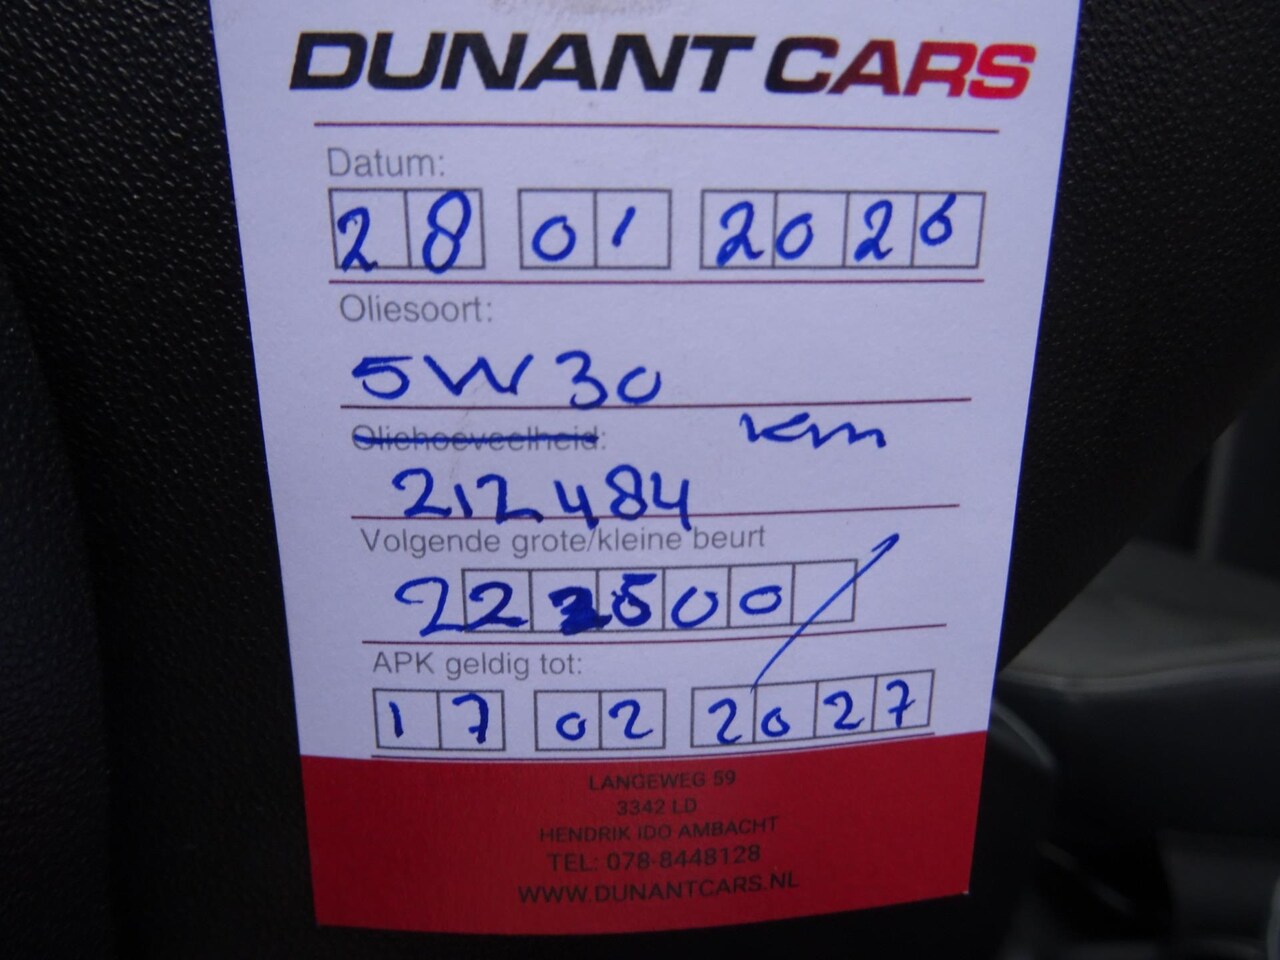 DUNANT CARS
Datum:
28 01 2026
Oliesoort:
5W30
Oliehoeveelheid: Km
212484
Volgende grote/kleine beurt
222500
APK geldig tot:
17 02 2027
LANGEWEG 59
3342 LD
HENDRIK IDO AMBACHT
TEL: 078-8448128
WWW.DUNANTCARS.NL